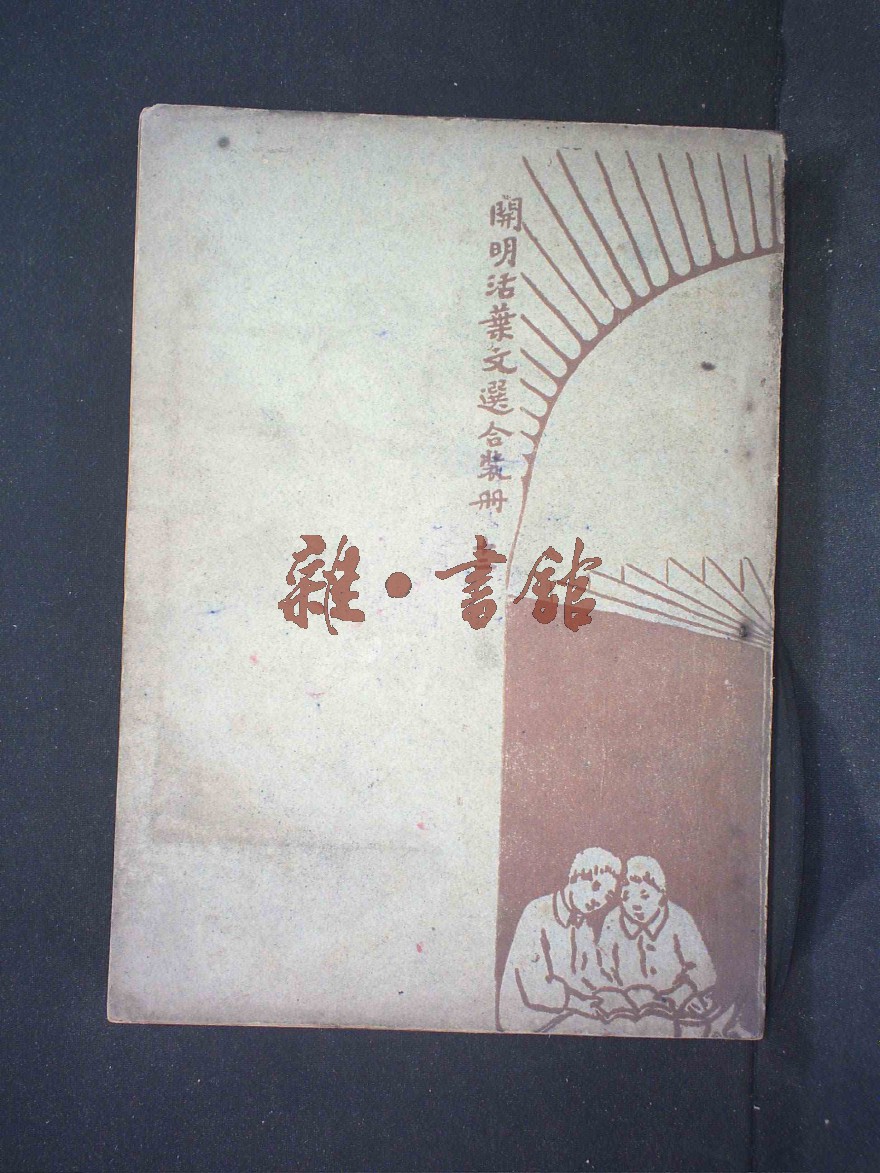 開明活葉文選合裝册
雜·書館